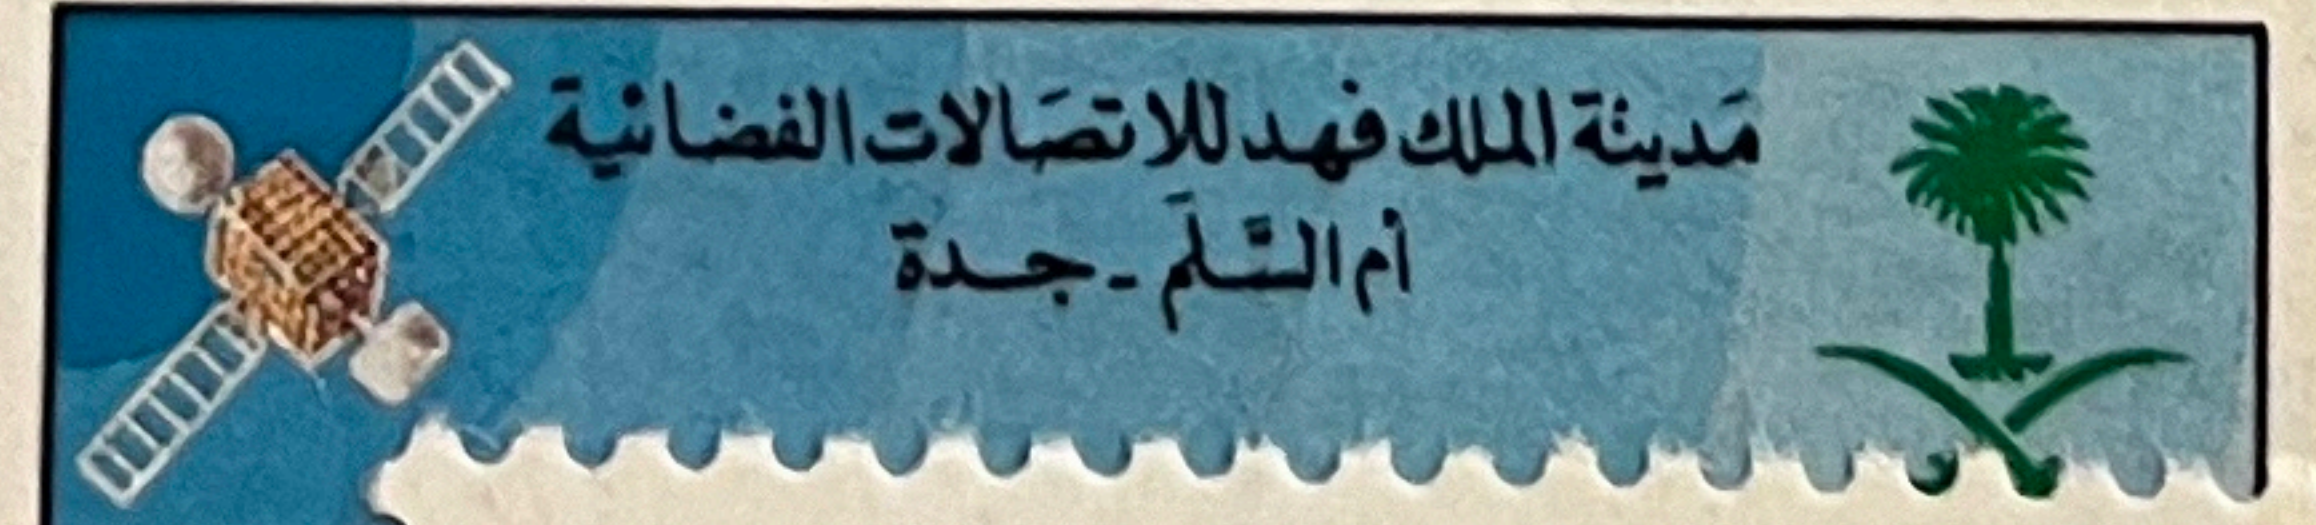 مَدينة الملك فهد للاتصَالات الفضائية
أم السَّلَم - جدة